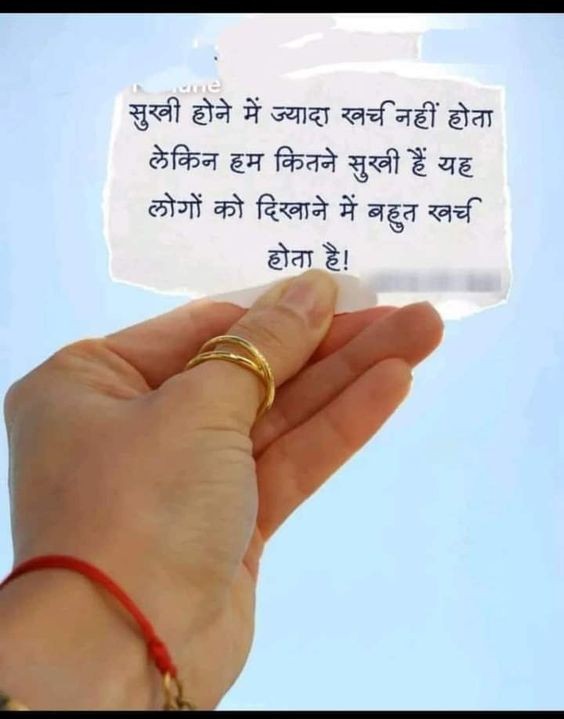 सुखी होने में ज्यादा खर्च नहीं होता
लेकिन हम कितने सुखी हैं यह
लोगों को दिखाने में बहुत खर्च
होता है!